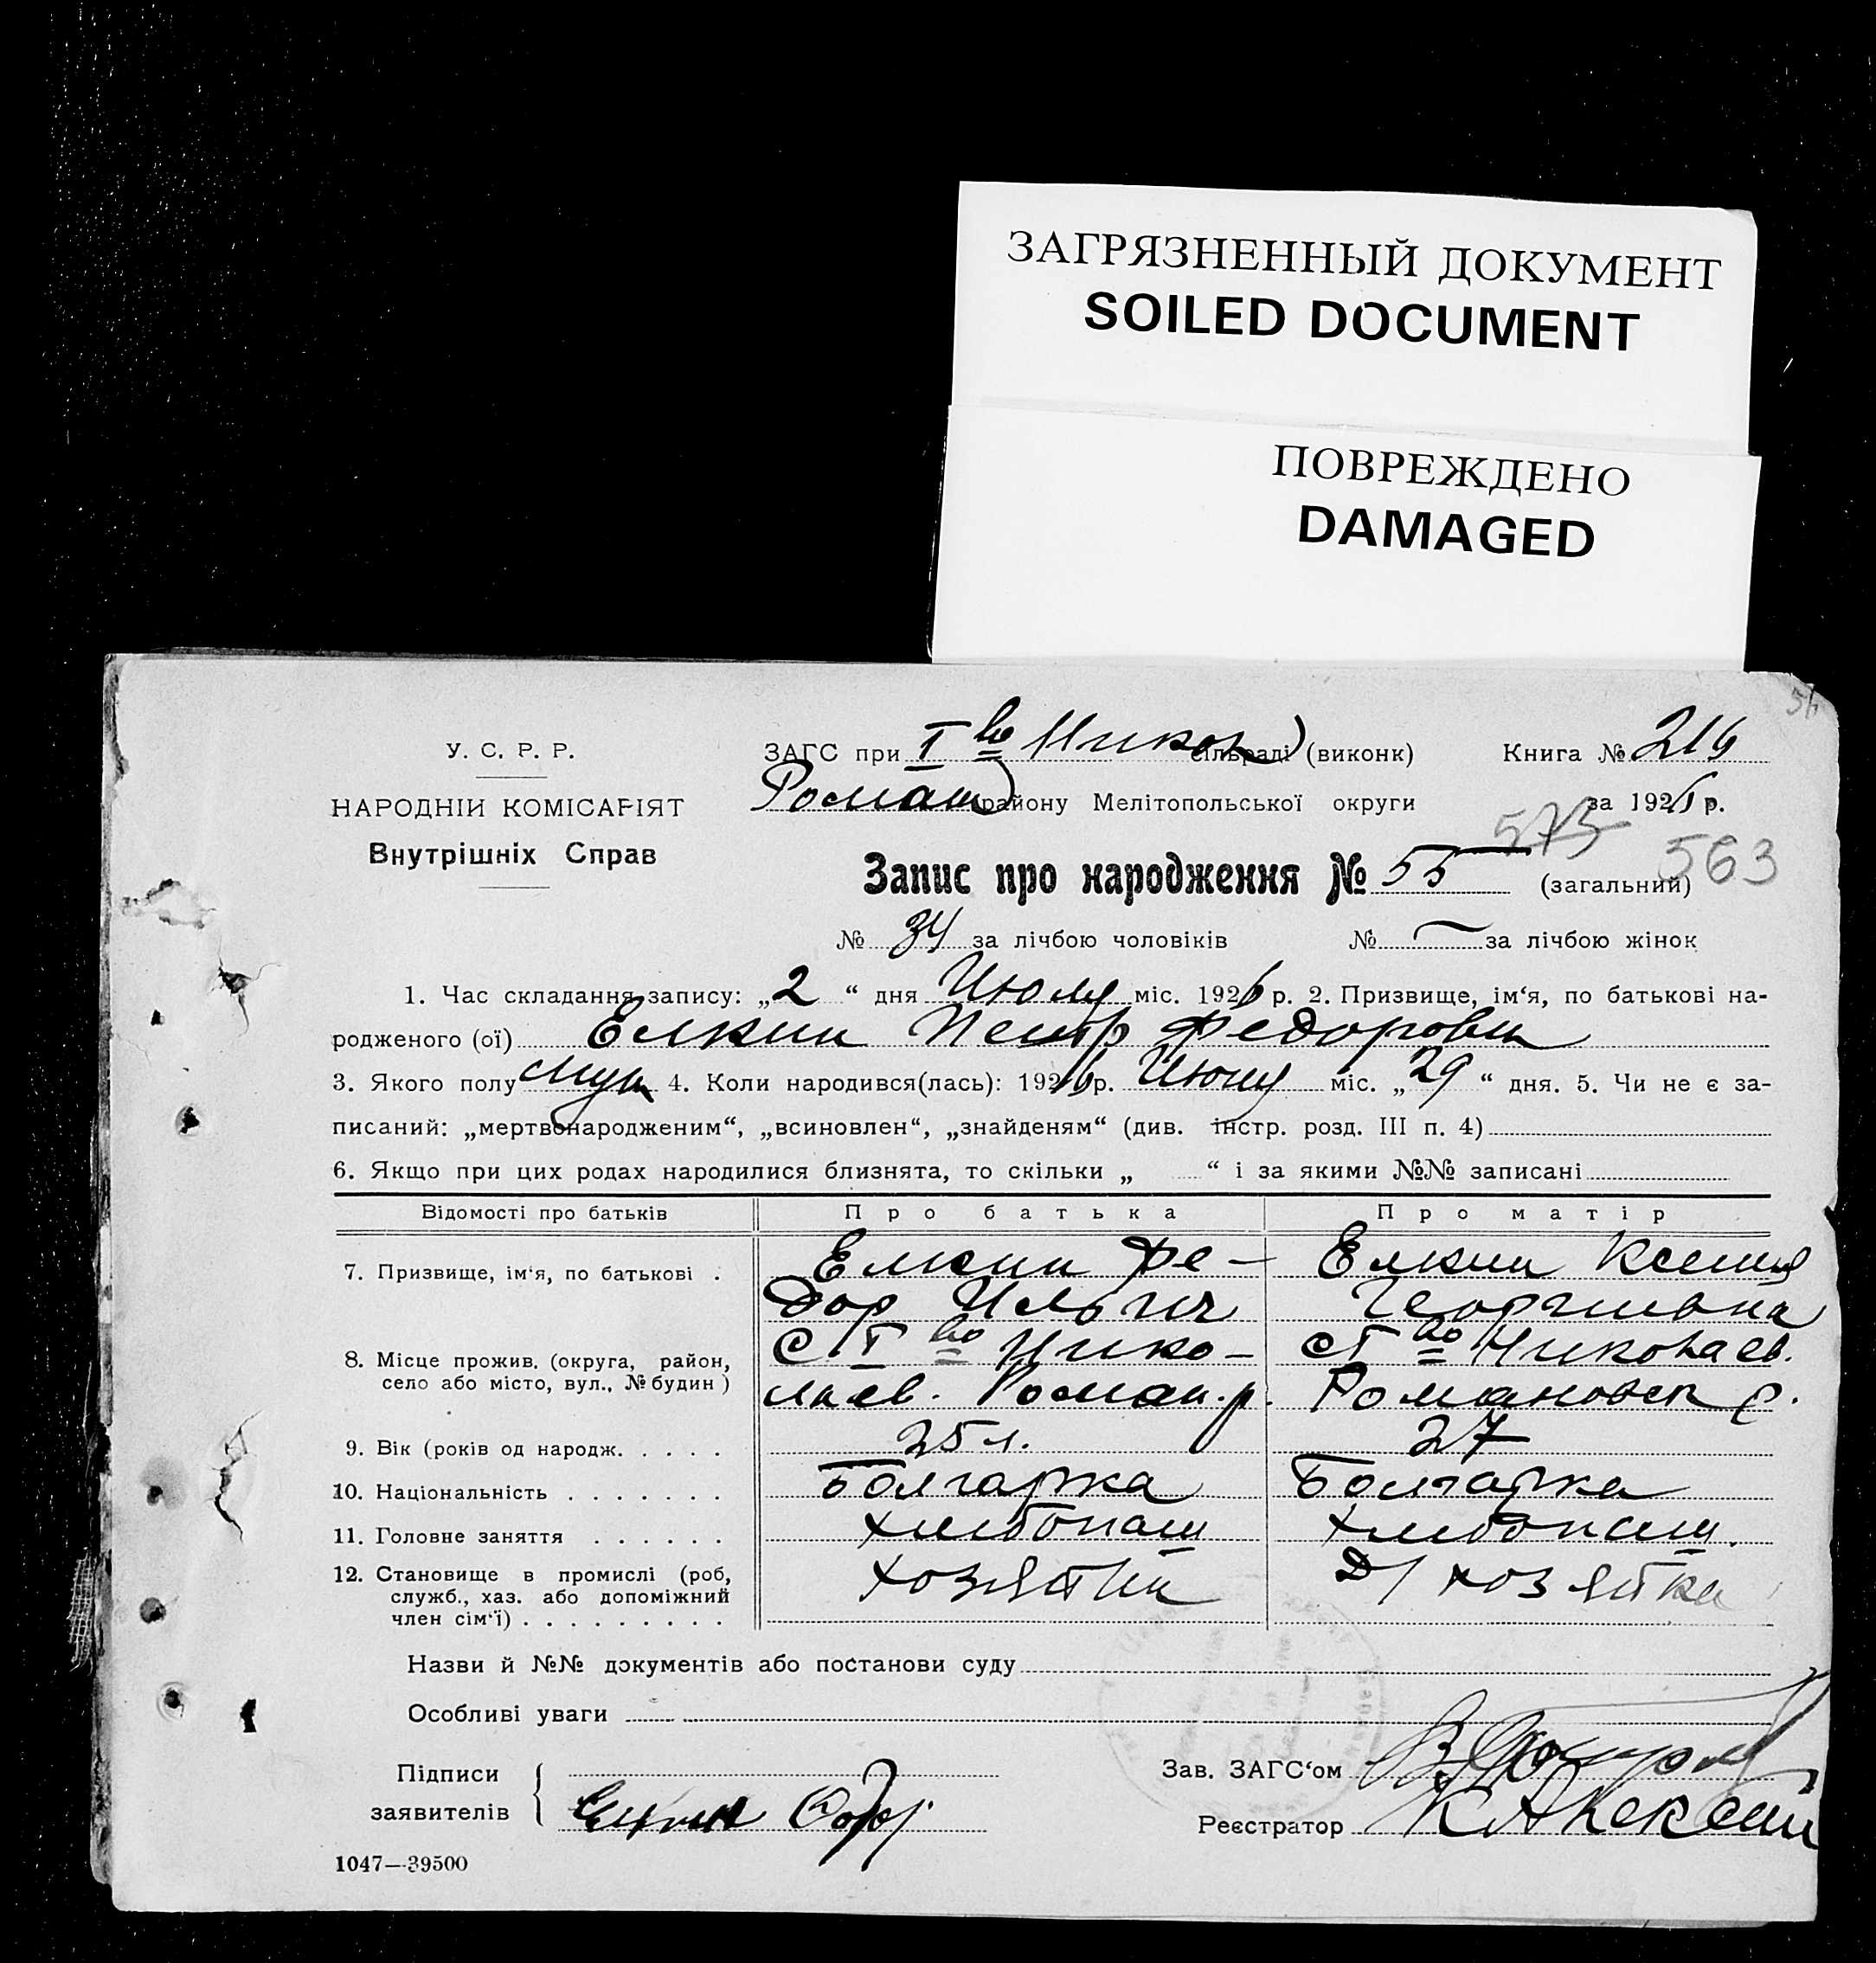 ЗАГРЯЗНЕННЫЙ ДОКУМЕНТ
SOILED DOCUMENT
ПОВРЕЖДЕНО
DAMAGED
56
У. С. Р. Р.
НАРОДНІЙ КОМІСАРІЯТ
Внутрішніх Справ
ЗАГС при I во Никол) сільраді (виконк) Книга № 216
Роман) району Мелітопольської округи за 1926 р.
573 563
Запис про народження № 55 (загальний)
№ 34 за лічбою чоловіків № — за лічбою жінок
1. Час складання запису: „2“ дня Июля міс. 1926 р. 2. Призвище, ім‘я, по батькові на-
родженого (ої) Елкин Петр Федорович
3. Якого полу муж 4. Коли народився(лась): 1926 р. Июня міс. „29“ дня. 5. Чи не є за-
писаний: „мертвонародженим“, „всиновлен“, „знайденям“ (див. інстр. розд. III п. 4)
6. Якщо при цих родах народилися близнята, то скільки „ “ і за якими №№ записані
Відомості про батьків Про батька Про матір
7. Призвище, ім‘я, по батькові . Елкин Фе- Елкин Ксения
дор Ильич Георгиевна
8. Місце прожив. (округа, район, С I во Нико- с I во Николаев.
село або місто, вул., № будин ) лаев. Роман. р. Романовск р.
9. Вік (років од народж. . . . . 25 л. 27
10. Національність . . . . . . . Болгарка Болгарка
11. Головне заняття . . . . . . хлебопаш хлебопаш.
12. Становище в промислі (роб, хозяйин Д/ хозяйка
служб., хаз. або допоміжний
член сім‘ї) . . . . . . . . .
Назви й №№ документів або постанови суду
Особливі уваги
Підписи
заявителів Елкин
Зав. ЗАГС‘ом
Реєстратор
1047—39500